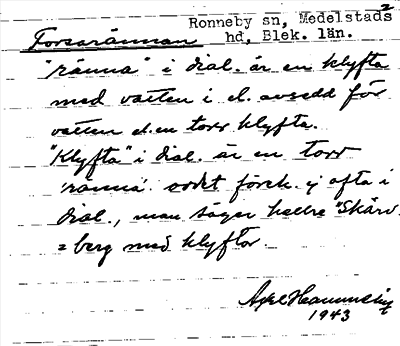 2
Ronneby sn, Medelstads
hd, Blek. län.
Forsarännan
"ränna" i dial. är en klyfta
med vatten i el. avsedd för
vatten el. en torr klyfta.
"Klyfta" i dial. är en torr
'ränna'. ordet förek. ej ofta i
dial., man säger hellre "Skärv
= berg med klyftor
Axel
1943